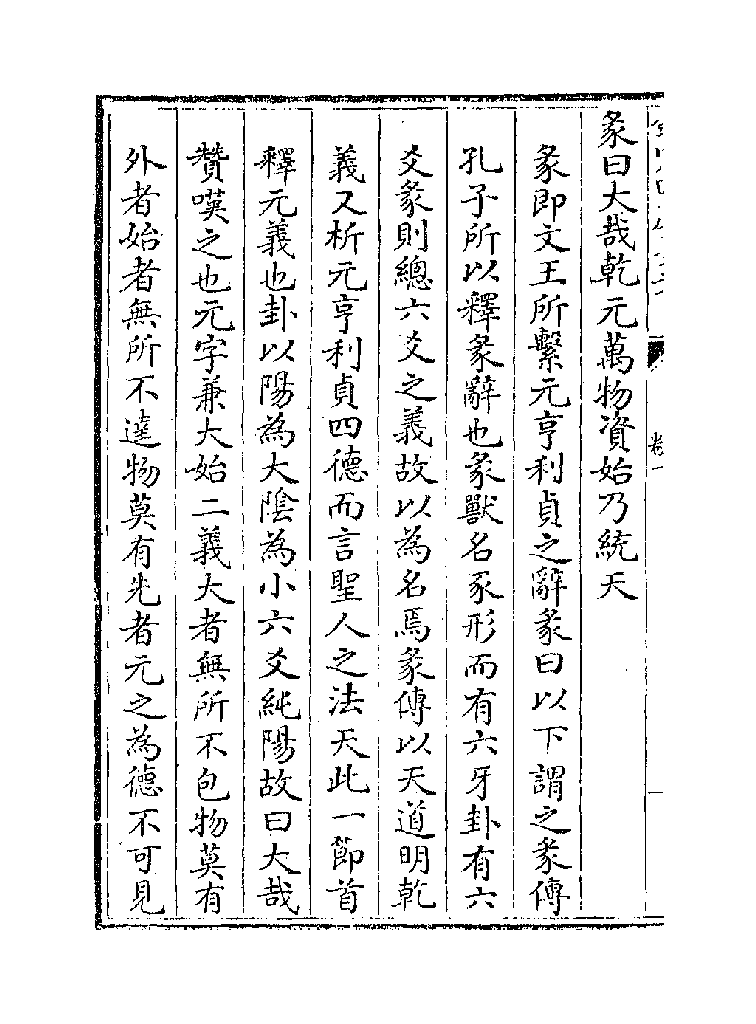 彖曰大哉乾元萬物資始乃統天
彖即文王所繫元亨利貞之辭彖曰以下謂之彖傳
孔子所以釋彖辭也彖獸名豕形而有六牙卦有六
爻彖則總六爻之義故以為名焉彖傳以天道明乾
義又析元亨利貞四德而言聖人之法天此一節首
釋元義也卦以陽為大陰為小六爻純陽故曰大哉
贊嘆之也元字兼大始二義大者無所不包物莫有
外者始者無所不達物莫有先者元之為德不可見
卷一